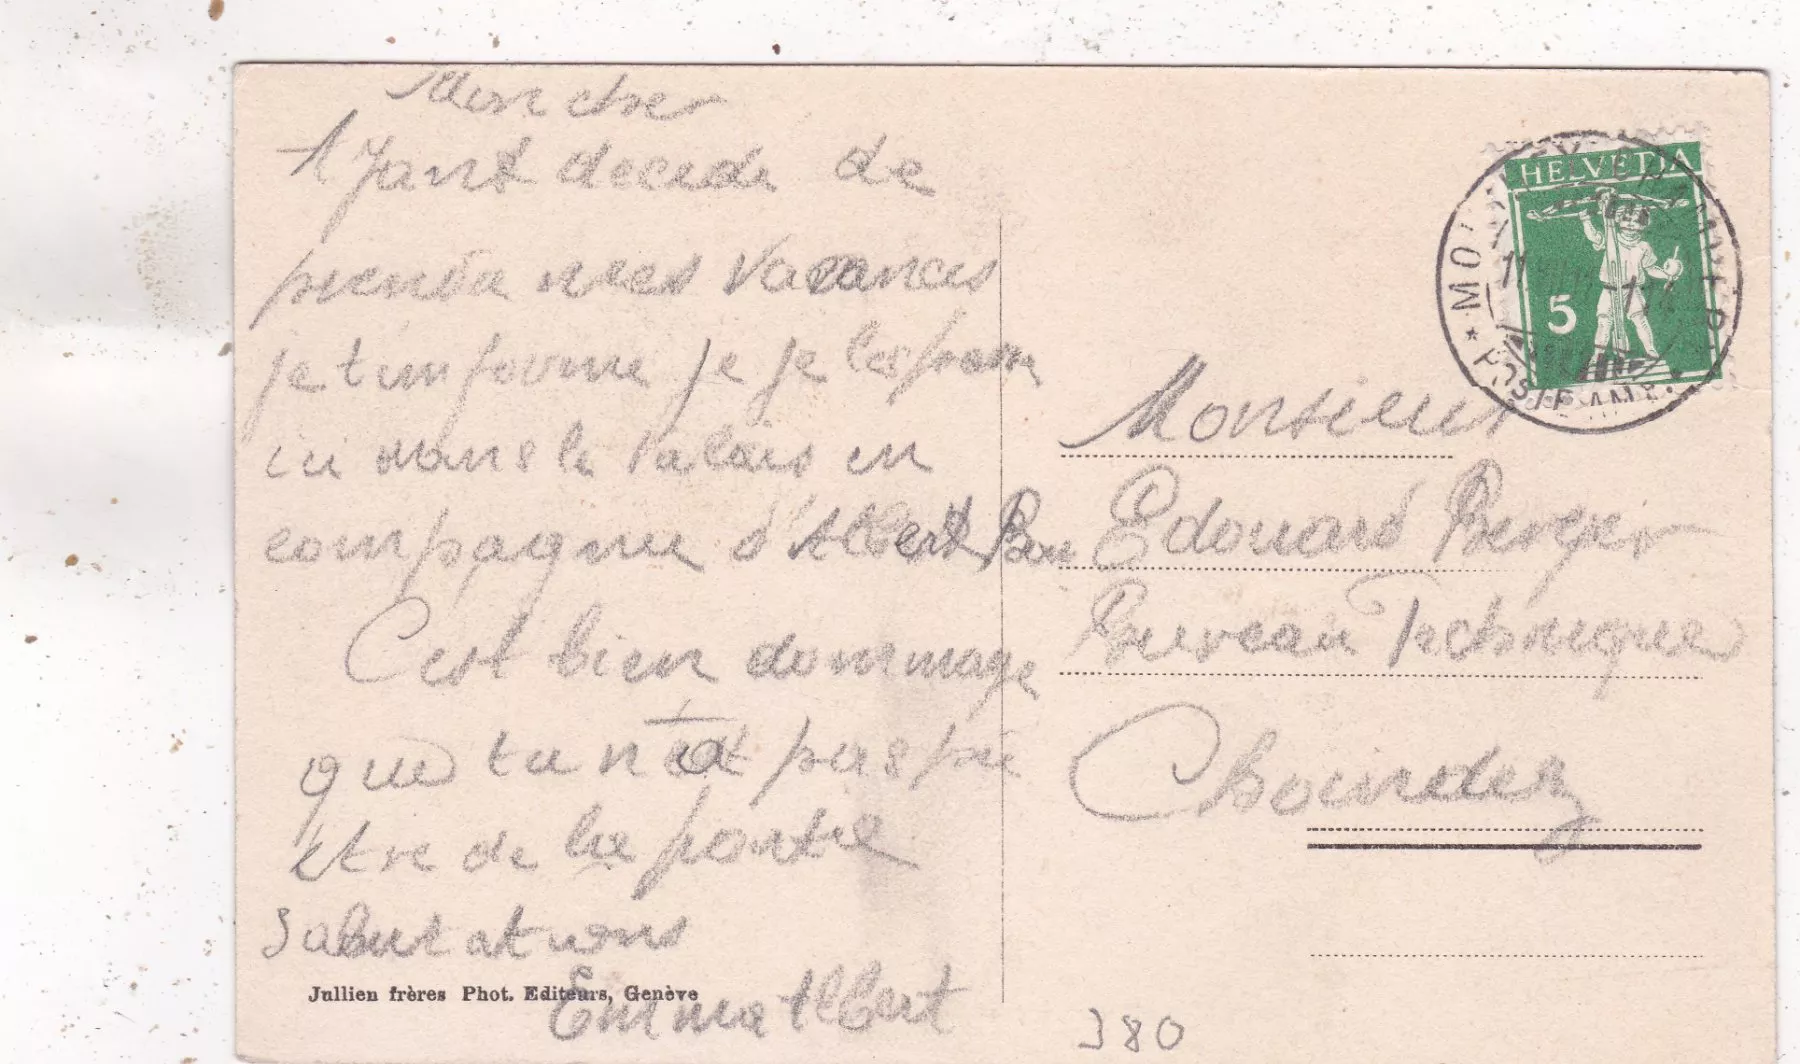 Mon cher
Ayant décidé de
prendre mes vacances
je t'informe je je les passe
ici dans le Valais en
compagnie d'Albert
C'est bien dommage
que tu n'ai pas pu
être de la partie
Salutations
Emma Albert
Jullien frères Phot. Editeurs, Genève
HELVETIA
5
Monsieur
Edouard Berger
Bureau Technique
Choindez
380